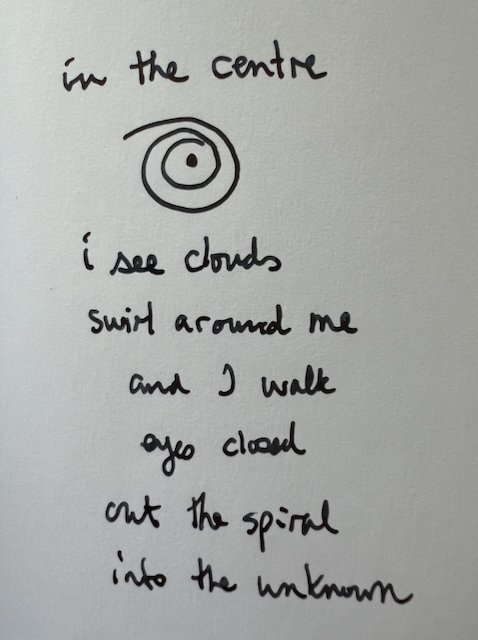 in the centre
i see clouds
swirl around me
and I walk
eyes closed
out the spiral
into the unknown